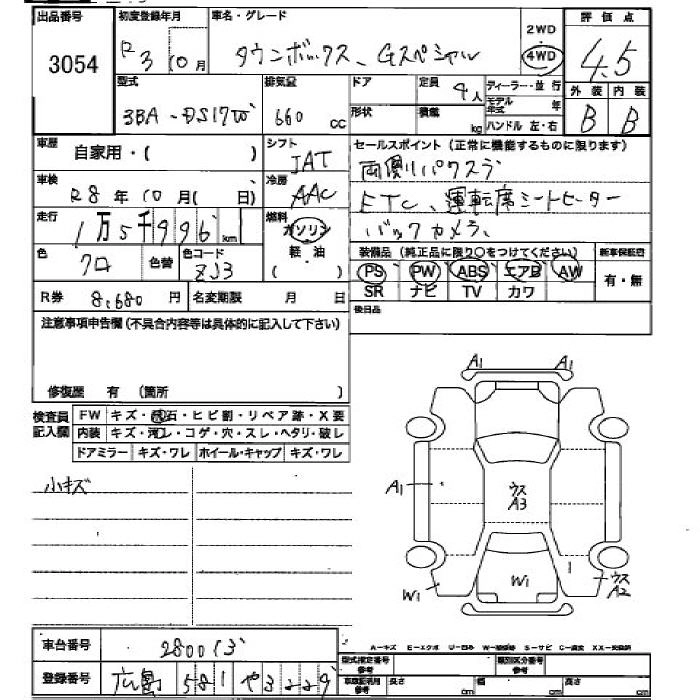 出品番号 初度登録年月 車名・グレード 2WD 評価点
3054 R3 10月 タウンボックス、Gスペシャル 4WD 4.5
型式 排気量 ドア 定員 4人 ディーラー・並行 外装 内装
3BA-DS17W 660 cc 形状 積載 kg モデル年式 年 B B
ハンドル 左・右
車歴 自家用・( ) シフト JAT セールスポイント(正常に機能するものに限ります)
両側パワスラ
車検 R8年10月( 日) 冷房 AAC ETC、運転席シートヒーター
走行 1万5千996km 燃料 ガソリン バックカメラ、
軽・油
( )
色 クロ 色替 色コード ZJ3 装備品(純正品に限り○をつけてください) 新車保証書
PS PW ABS エアB AW 有・無
R券 8,680円 名変期限 月 日 SR ナビ TV カワ
注意事項申告欄(不具合内容等は具体的に記入して下さい) 後日品
修復歴 有 (箇所 )
検査員記入欄 FW キズ・飛石・ヒビ割・リペア跡・X要
内装 キズ・汚レ・コゲ・穴・スレ・ヘタリ・破レ
ドアミラー キズ・ワレ ホイール・キャップ キズ・ワレ
小キズ
A1 A1
A1
ウス
A3
W1 W1 ウス
A2
A-キズ E-エクボ U-凹み W-補修跡 S-サビ C-腐食 XX-交換済
車台番号 280013 型式指定番号 参考 類別区分番号 参考
登録番号 広島 581 や 3229 車庫証明用 参考 長さ cm 幅 cm 高さ cm